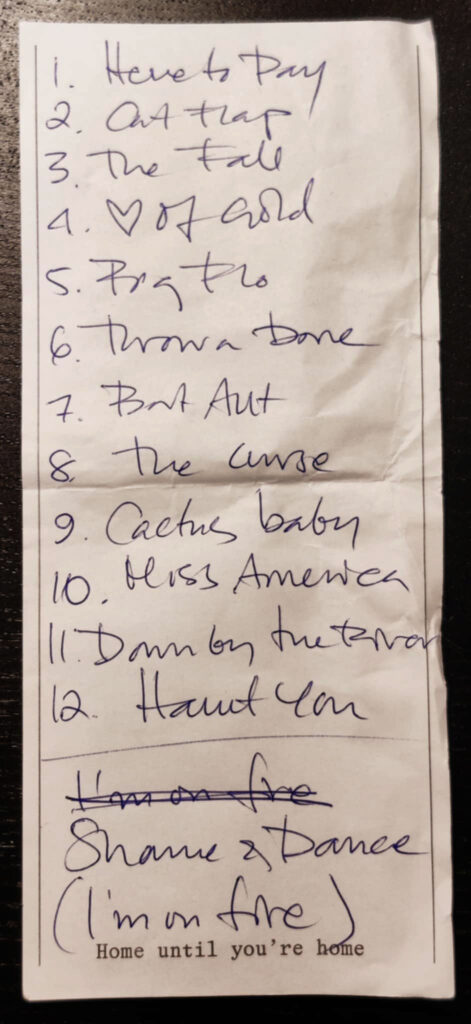 1. Here to Day
2. Cut trap
3. The Fall
4. ♡ of Gold
5. Big Flo
6. Throw a Bone
7. But Aut
8. The Curse
9. Cactus baby
10. Miss America
11. Down by the River
12. Haunt You
I'm on fire
Shame & Dance
(I'm on fire)
Home until you're home